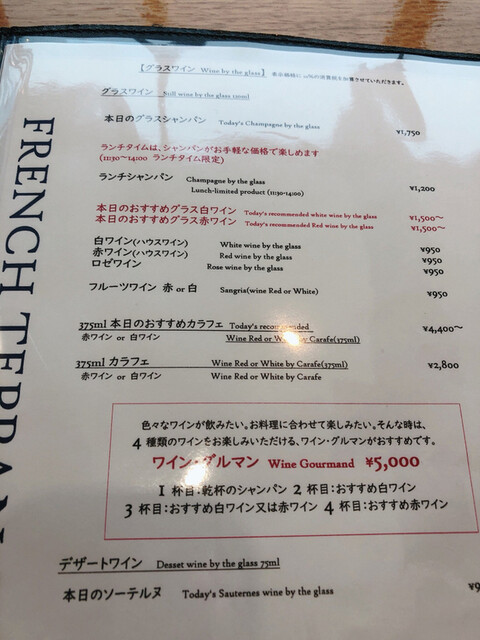 【グラスワイン Wine by the glass】 表示価格に 10%の消費税を加算させていただきます。
グラスワイン Still wine by the glass 110ml
本日のグラスシャンパン Today's Champagne by the glass ¥1,750
ランチタイムは、シャンパンがお手軽な価格で楽しめます
(11:30~14:00 ランチタイム限定)
ランチシャンパン Champagne by the glass
Lunch-limited product (11:30-14:00) ¥1,200
本日のおすすめグラス白ワイン Today's recommended white wine by the glass ¥1,500~
本日のおすすめグラス赤ワイン Today's recommended Red wine by the glass ¥1,500~
白ワイン(ハウスワイン) White wine by the glass ¥950
赤ワイン(ハウスワイン) Red wine by the glass ¥950
ロゼワイン Rose wine by the glass ¥950
フルーツワイン 赤 or 白 Sangria(wine Red or White) ¥950
375ml 本日のおすすめカラフェ Today's recommended ¥4,400~
赤ワイン or 白ワイン Wine Red or White by Carafe(375ml)
375ml カラフェ Wine Red or White by Carafe(375ml) ¥2,800
赤ワイン or 白ワイン Wine Red or White by Carafe
色々なワインが飲みたい。お料理に合わせて楽しみたい。そんな時は、
4 種類のワインをお楽しみいただける、ワイン・グルマンがおすすめです。
ワイン・グルマン Wine Gourmand ¥5,000
1 杯目:乾杯のシャンパン 2 杯目:おすすめ白ワイン
3 杯目:おすすめ白ワイン又は赤ワイン 4 杯目:おすすめ赤ワイン
デザートワイン Desset wine by the glass 75ml
本日のソーテルヌ Today's Sauternes wine by the glass
FRENCH TEPPAN